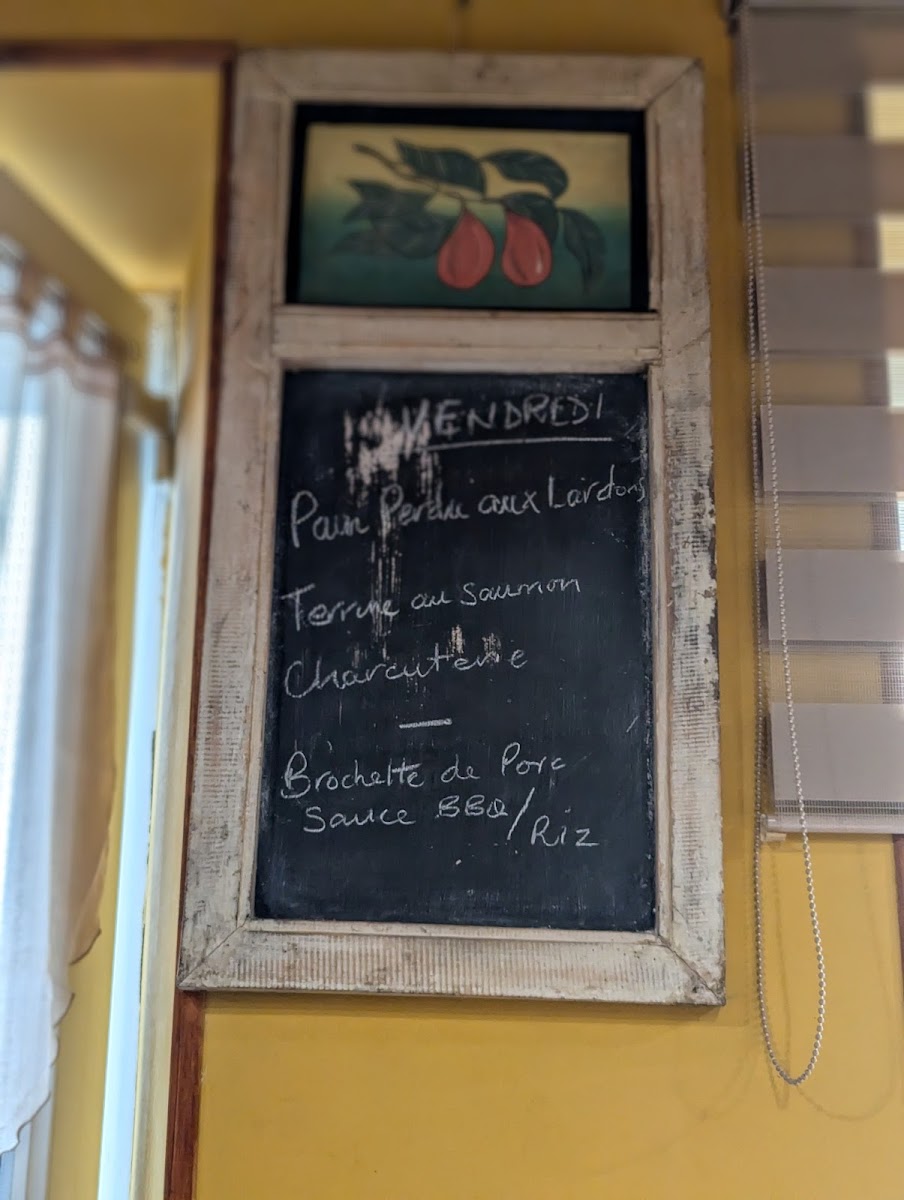 VENDREDI
Pain Perdu aux Lardons
Terrine au Saumon
Charcuterie
Brochette de Porc
Sauce BBQ/
Riz